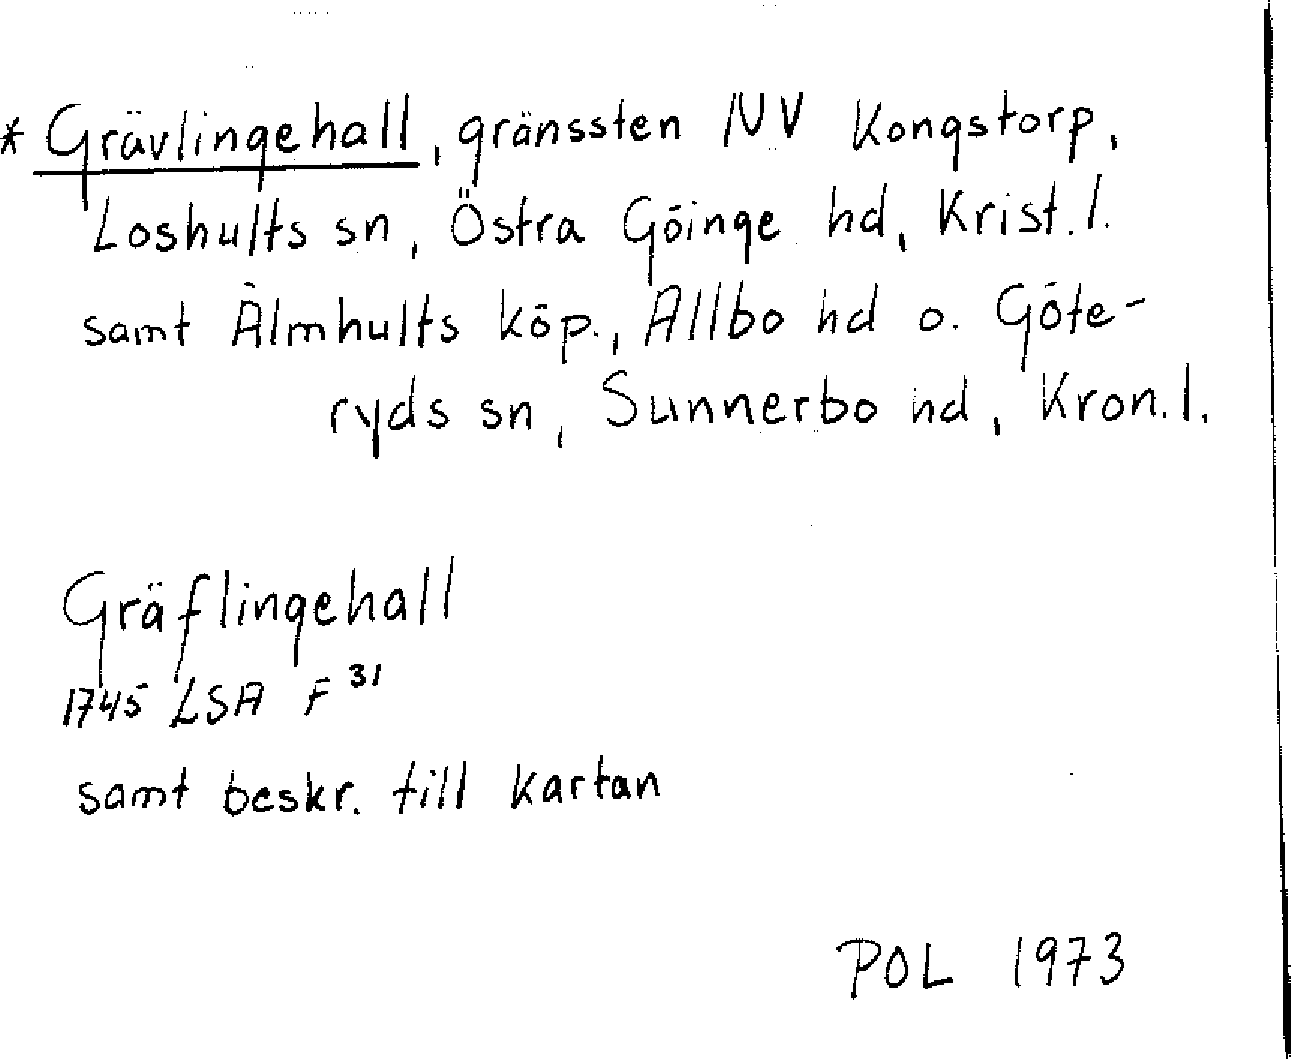 * Grävlingehall, gränssten NV Kongstorp,
Loshults sn, Östra Göinge hd, Krist. l.
samt Älmhults köp., Allbo hd o. Göte-
ryds sn, Sunnerbo hd, Kron. l.
Gräflingehall
1745 LSA F 31
samt beskr. till kartan
POL 1973